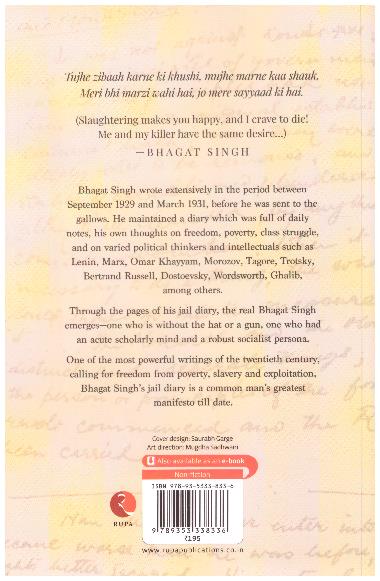 Tujhe zibaah karne ki khushi, mujhe marne kaa shauk,
Meri bhi marzi wahi hai, jo mere sayyaad ki hai.
(Slaughtering makes you happy, and I crave to die!
Me and my killer have the same desire...)
—BHAGAT SINGH
Bhagat Singh wrote extensively in the period between
September 1929 and March 1931, before he was sent to the
gallows. He maintained a diary which was full of daily
notes, his own thoughts on freedom, poverty, class struggle,
and on varied political thinkers and intellectuals such as
Lenin, Marx, Omar Khayyam, Morozov, Tagore, Trotsky,
Bertrand Russell, Dostoevsky, Wordsworth, Ghalib,
among others.
Through the pages of his jail diary, the real Bhagat Singh
emerges—one who is without the hat or a gun, one who had
an acute scholarly mind and a robust socialist persona.
One of the most powerful writings of the twentieth century,
calling for freedom from poverty, slavery and exploitation,
Bhagat Singh's jail diary is a common man's greatest
manifesto till date.
Cover design: Saurabh Garge
Art direction: Mugdha Sadhwani
Also available as an e-book
Non-fiction
ISBN 978-93-5333-833-6
9 789353 338336
₹195
RUPA
www.rupapublications.co.in